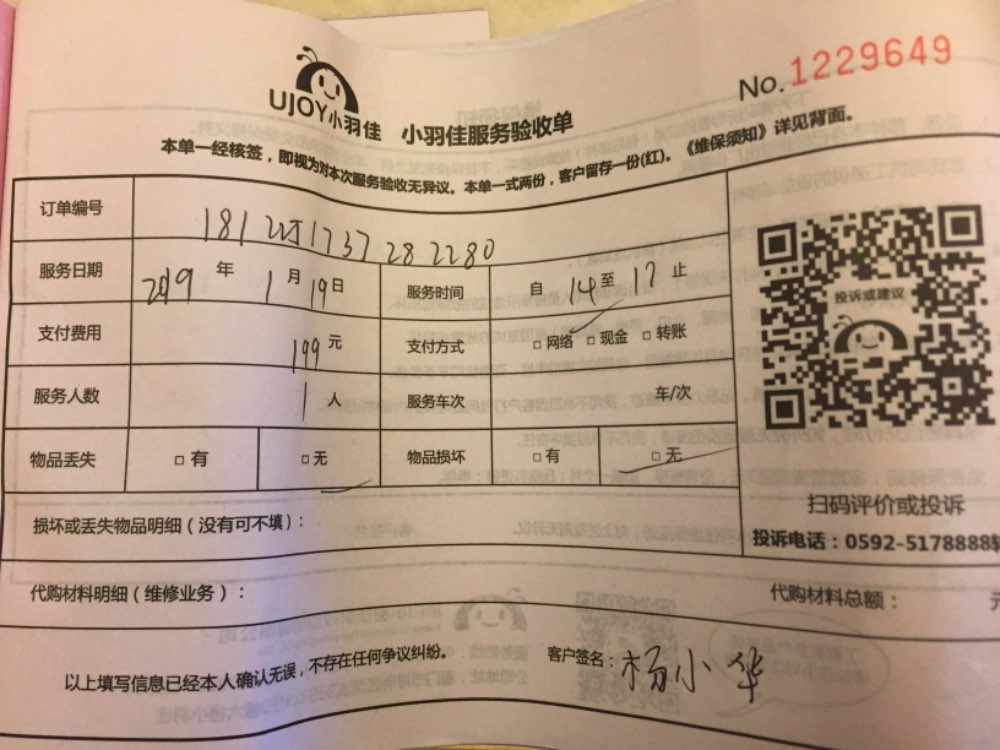 No.1229649
UJOY小羽佳 小羽佳服务验收单
本单一经核签，即视为对本次服务验收无异议。本单一式两份，客户留存一份(红)。《维保须知》详见背面。
订单编号
服务日期 2019 年 1 月 19 日 服务时间 自 14 至 17 止
支付费用 199 元 支付方式 □ 网络 □ 现金 □ 转账
服务人数 1 人 服务车次 车/次
物品丢失 □ 有 □ 无 物品损坏 □ 有 □ 无
投诉或建议
扫码评价或投诉
投诉电话：0592-5178888
损坏或丢失物品明细（没有可不填）：
代购材料明细（维修业务）： 代购材料总额： 元
以上填写信息已经本人确认无误，不存在任何争议纠纷。 客户签名：杨小华